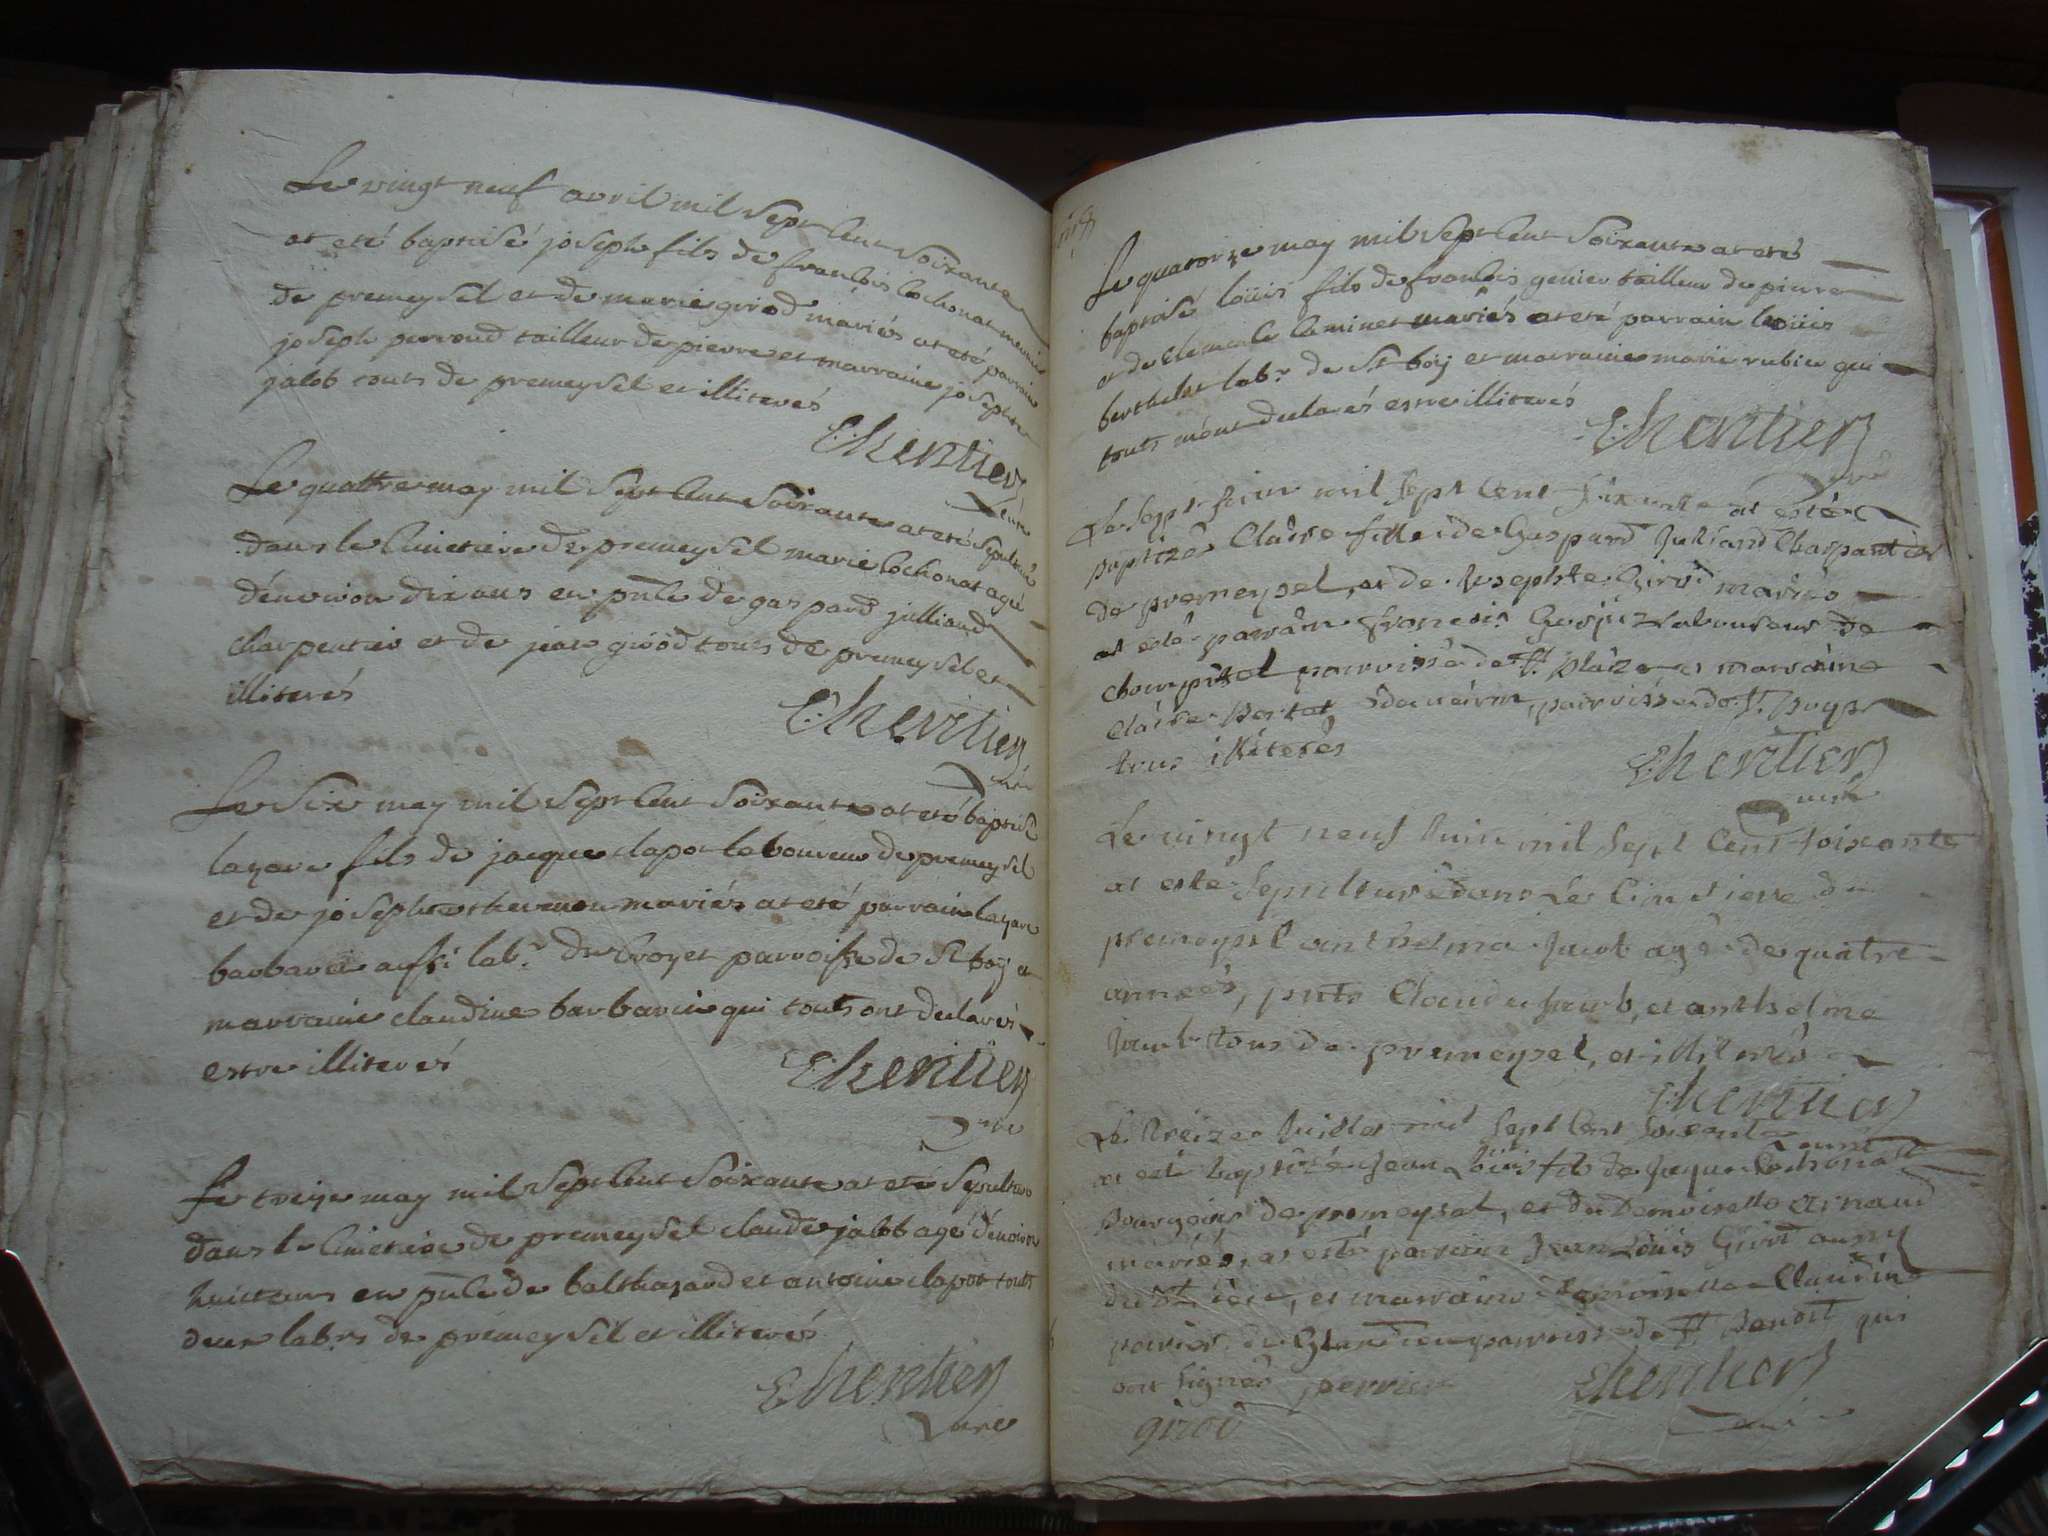 Le vingt neuf avril mil sept cent soixante
at eté baptisé joseph fils de francois cochonat meunier
de premeysel et de marie girod mariés at eté parrain
joseph perroud tailleur de pierre et marraine josephte
jacob touts de premeysel et illiterés
Chentier
curé
Le quattre may mil sept cent soixante at eté sepulturé
dans le cimetiere de premeysel marie cochonat agé
d'environ dix ans en pnce de gaspard julliand
charpentier et de jean girod touts de premeysel et
illiterés
Chentier
curé
Le six may mil sept cent soixante at eté baptisé
lazare fils de jacque clapot laboureur de premeysel
et de josephte thevenon mariés at eté parrain lazare
barbarin aussi labr. de croyet parroisse de St boy et
marraine claudine barbarin qui touts ont declarés
estre illiterés
Chentier
curé
Le treize may mil sept cent soixante at eté sepulturé
dans le cimetiere de premeysel claude jacob agé d'environ
huict ans en pnce de balthazard et antoine clapot touts
deux labrs de premeysel et illiterés
Chentier
curé
Le quatorze may mil sept cent soixante at eté
baptisé loüis fils de francois genier tailleur de pierre
et de clemence ceminet mariés at eté parrain loüis
berthelet labr. de St boy et marraine marie rubin qui
touts m'ont declarés estre illiterés
Chentier
curé
Le sept juin mil sept cent soixante at esté
baptizé Claire fille de Gaspard Julliand Charpantier
de premeysel, et de Josephte Girod mariés
at esté parrain francois laboureur de
parroisse de St. plaize et marraine
Claire parroisse de St.
tous illiterés
Chentier
curé
Le vingt neuf Juin mil sept Cent soixante
at esté sepulturé dans Le Cimetiere de
premeysel anthelma Jacob agé de quatre
années, pnts Claude Jacob, et anthelme
Jacob tous de premeysel, et illiterés
Chentier
curé
Le treize Juillet mil sept Cent soixante
at esté baptizé Jean Loüis fils de Jaque Cochonat
Bourgeois de premeysel, et de Demoiselle arnaud
mariés, at esté parrain Jean Loüis Girod aussy
dudt. lieu, et marraine Demoiselle Claudine
perier de Glandieu parroisse de St Benoit qui
ont signés perrier
Chentier
girod
curé